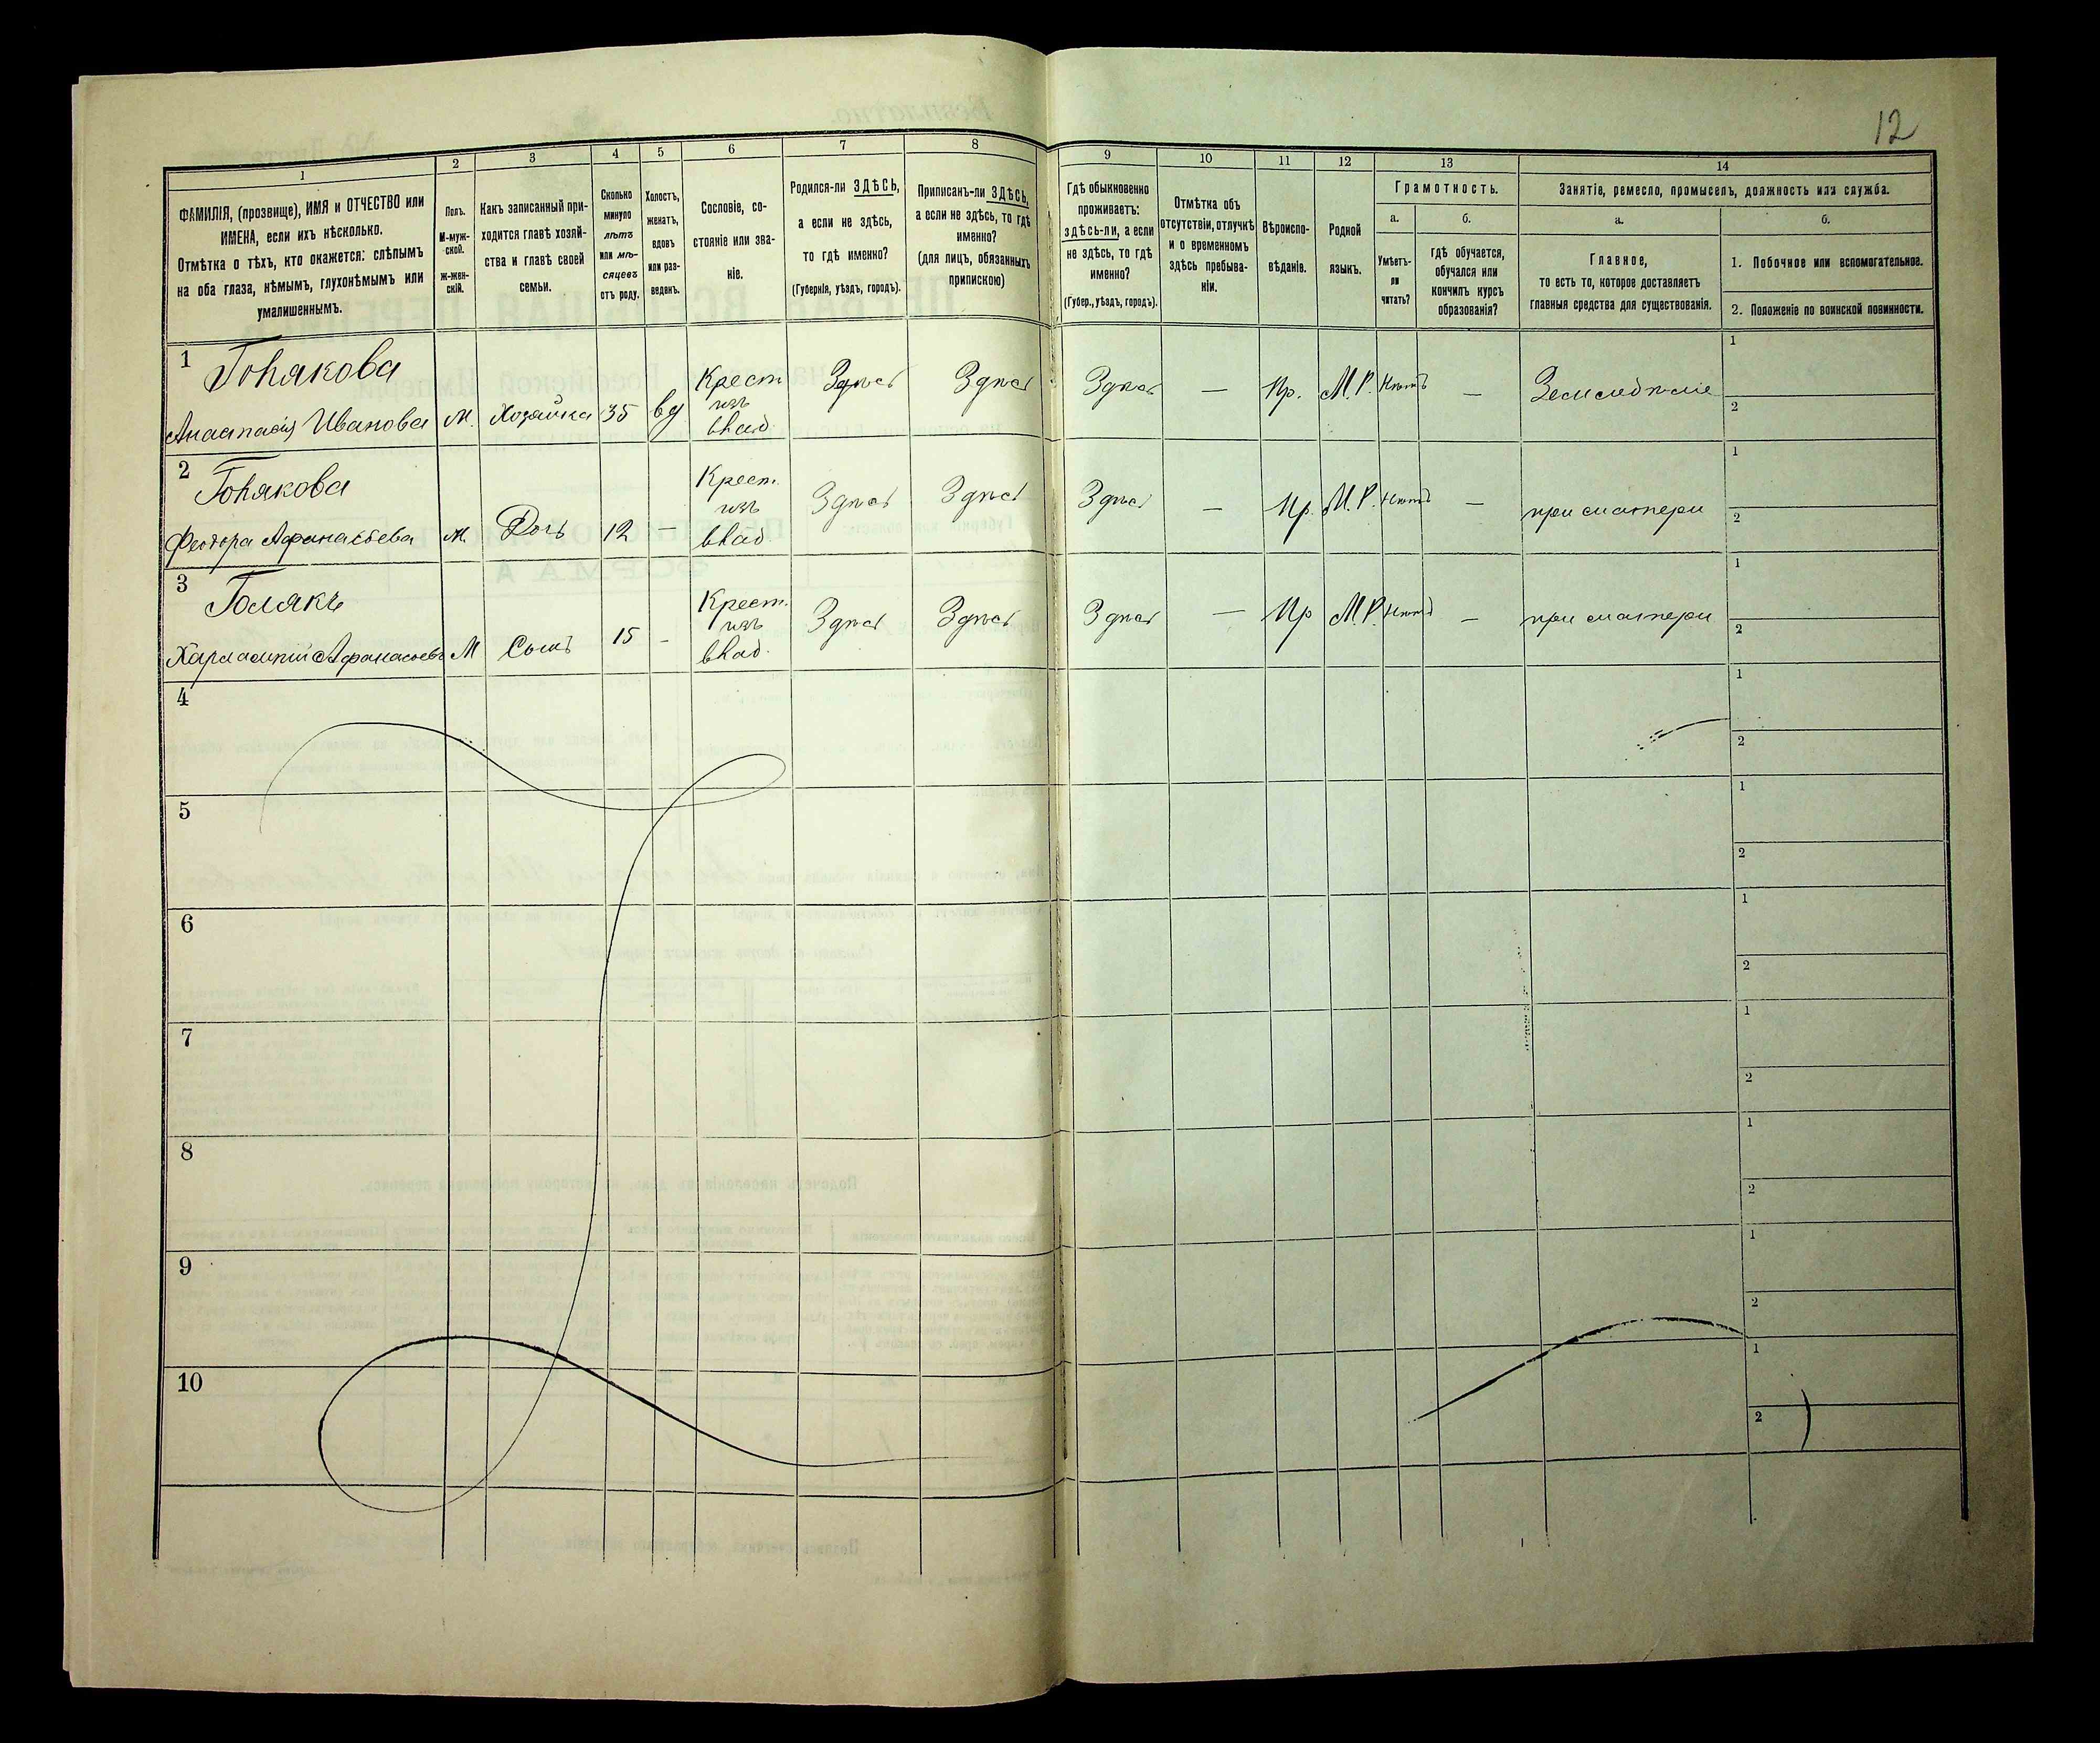 12
1
2
3
4
5
6
7
8
9
10
11
12
13
14
ФАМИЛІЯ, (прозвище), ИМЯ и ОТЧЕСТВО или
ИМЕНА, если ихъ нѣсколько.
Отмѣтка о тѣхъ, кто окажется: слѣпымъ
на оба глаза, нѣмымъ, глухонѣмымъ или
умалишеннымъ.
Полъ.
М-муж-
ской.
Ж-жен-
скій.
Какъ записанный при-
ходится главѣ хозяй-
ства и главѣ своей
семьи.
Сколько
минуло
лѣтъ
или мѣ-
сяцевъ
отъ роду.
Холостъ,
женатъ,
вдовъ
или раз-
веденъ.
Сословіе, со-
стояніе или зва-
ніе.
Родился-ли ЗДѢСЬ,
а если не здѣсь,
то гдѣ именно?
(Губернія, уѣздъ, городъ).
Приписанъ-ли ЗДѢСЬ,
а если не здѣсь, то гдѣ
именно?
(для лицъ, обязанныхъ
припискою)
Гдѣ обыкновенно
проживаетъ:
здѣсь-ли, а если
не здѣсь, то гдѣ
именно?
(Губер., уѣздъ, городъ).
Отмѣтка объ
отсутствіи, отлучкѣ
и о временномъ
здѣсь пребыва-
ніи.
Вѣроиспо-
вѣданіе.
Родной
языкъ.
Грамотность.
а.
б.
Умѣетъ-
ли
читать?
гдѣ обучается,
обучался или
кончилъ курсъ
образованія?
Занятіе, ремесло, промыселъ, должность или служба.
а.
б.
Главное,
то есть то, которое доставляетъ
главныя средства для существованія.
1. Побочное или вспомогательное.
2. Положеніе по воинской повинности.
1 Голякова
Анастасія Иванова М. Хозяйка 35 вд Крест изъ влад Здѣсь Здѣсь Здѣсь — Пр. М.Р. Нѣтъ — Земледѣліе 1 2
2 Голякова
Феодора Афанасьева М. Дочь 12 — Крест. изъ влад. Здѣсь Здѣсь Здѣсь — Пр. М.Р. Нѣтъ — при матери 1 2
3 Голякъ
Харлампій Афанасьевъ М Сынъ 15 - Крест. изъ влад. Здѣсь Здѣсь Здѣсь — Пр М.Р. Нѣтъ — при матери 1 2
4 1 2
5 1 2
6 1 2
7 1 2
8 1 2
9 1 2
10 1 2